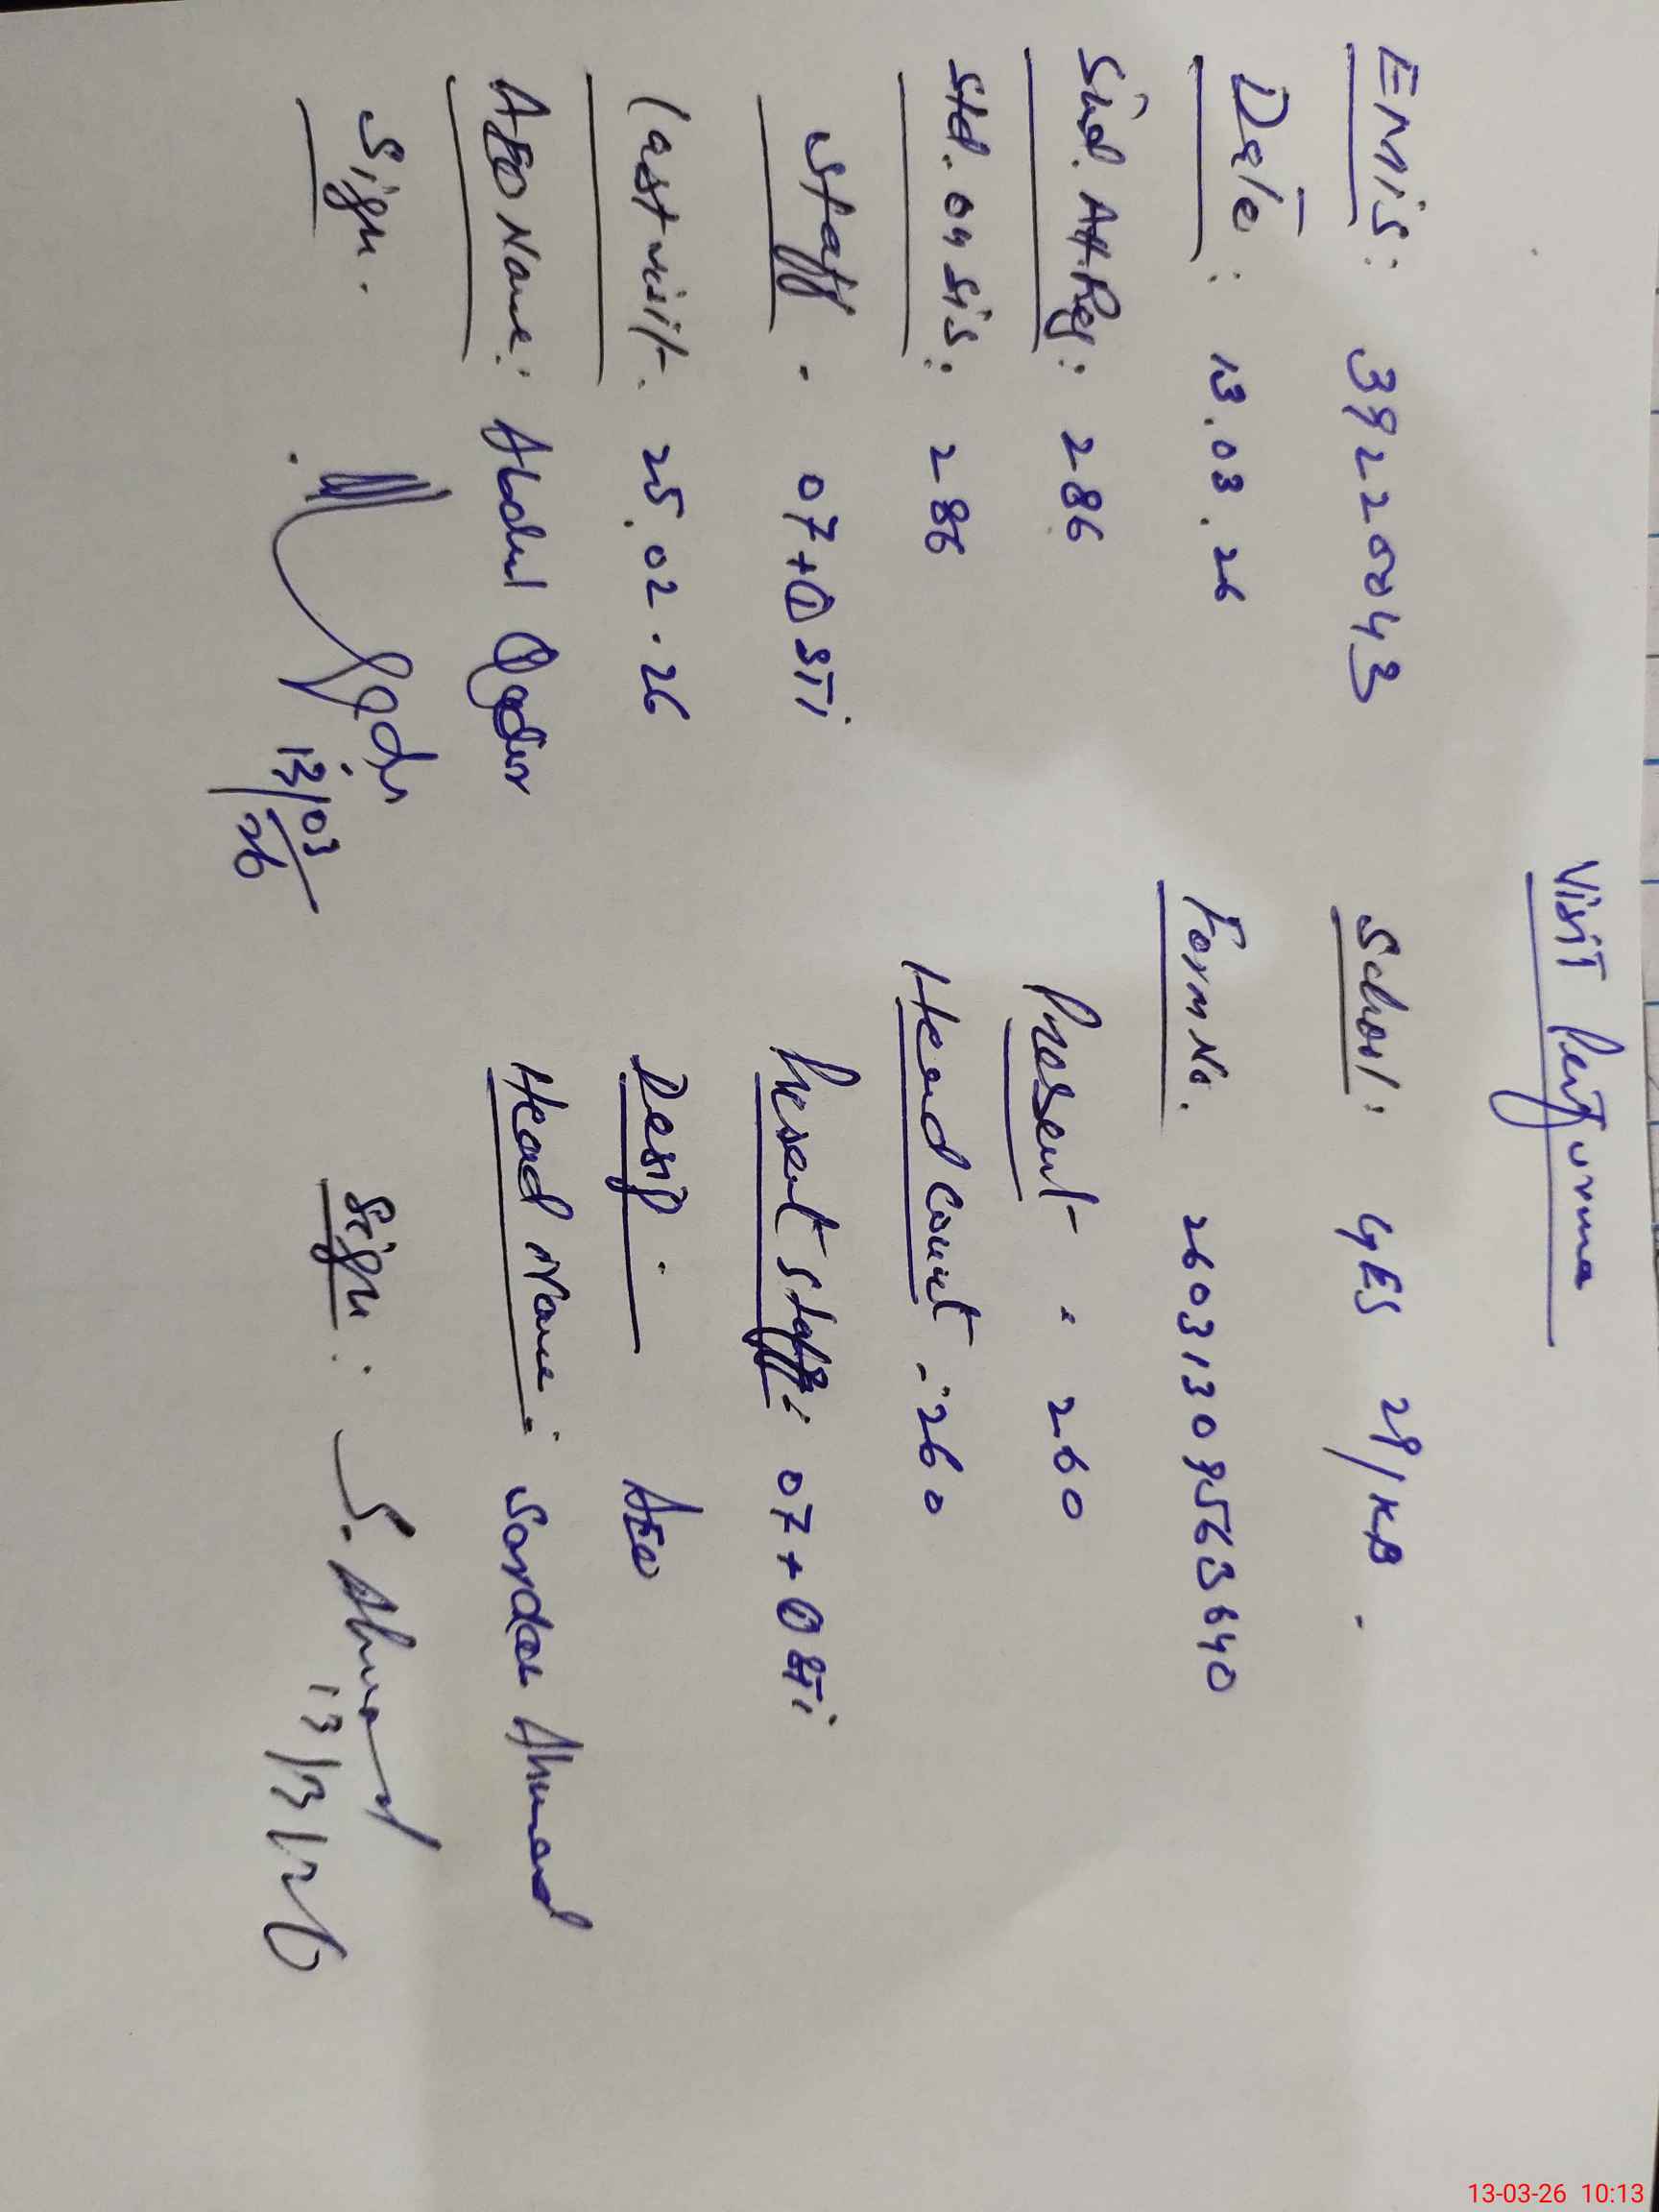 Visit Performa
EMIS: 39220043 School: GES 29/KB
Date: 13.03.26 Form No. 260313095635640
Std. Att. Reg: 286 Present - 260
Std. on sis: 286 Head Count - 260
Staff - 07+① STI Present Staff: 07+① STI
Last visit. 25.02.26 Desig: AEO
AEO Name: Abdul Qadir Head Name: Sardar Ahmad
Sign. Qadir Sign: S. Ahmad
13/03/26 13/3/26
13-03-26 10:13